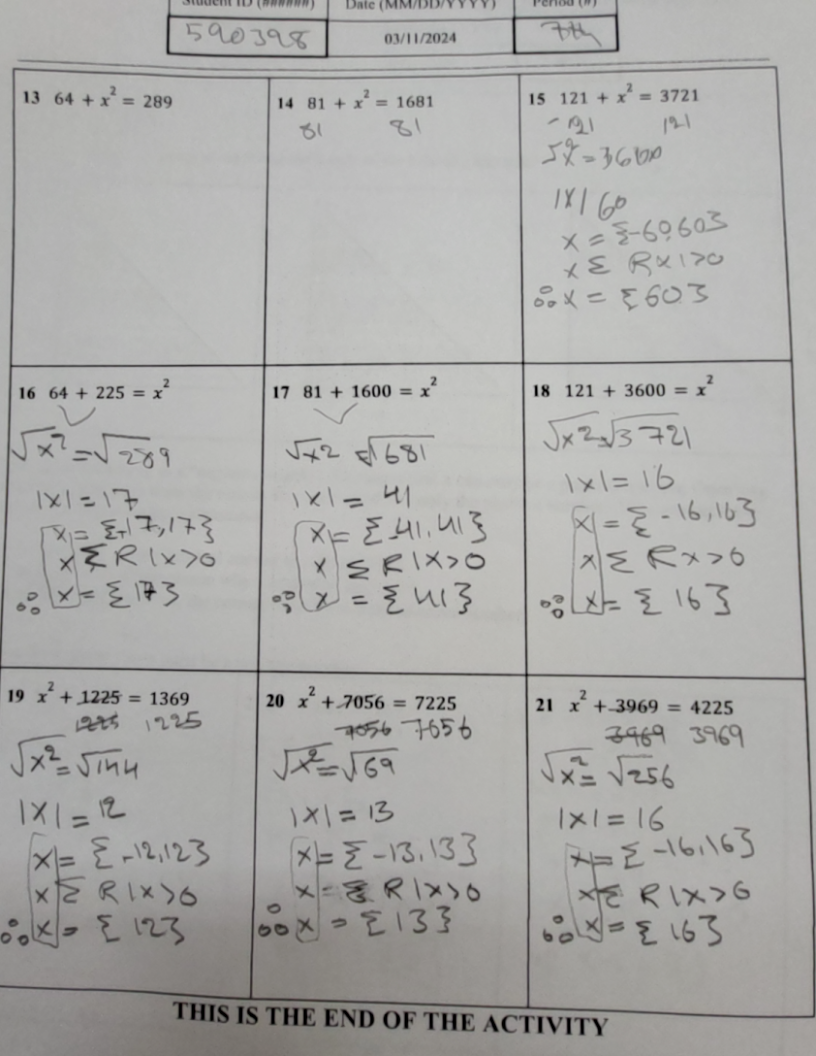 Student ID (######) Date (MM/DD/YYYY) Period (#)
590398 03/11/2024 7th
13 64 + x² = 289
14 81 + x² = 1681
81 81
15 121 + x² = 3721
- 121 121
√x² = 3600
|x| 60
x = {-60,60}
x Σ R x|>0
∴ x = {60}
16 64 + 225 = x²
√x² = √289
|x| = 17
x = {-17,17}
x Σ R|x>0
∴ x = {17}
17 81 + 1600 = x²
√x² = √1681
|x| = 41
x = {-41,41}
x Σ R|x>0
∴ x = {41}
18 121 + 3600 = x²
√x² = √3721
|x| = 16
x = {-16,16}
x Σ R x>0
∴ x = {16}
19 x² + 1225 = 1369
1225 1225
√x² = √144
|x| = 12
x = {-12,12}
x Σ R|x>0
∴ x = {12}
20 x² + 7056 = 7225
7056 7056
√x² = √69
|x| = 13
x = {-13,13}
x = Σ R|x>0
∴ x = {13}
21 x² + 3969 = 4225
3969 3969
√x² = √256
|x| = 16
x = {-16,16}
x Σ R|x>0
∴ x = {16}
THIS IS THE END OF THE ACTIVITY